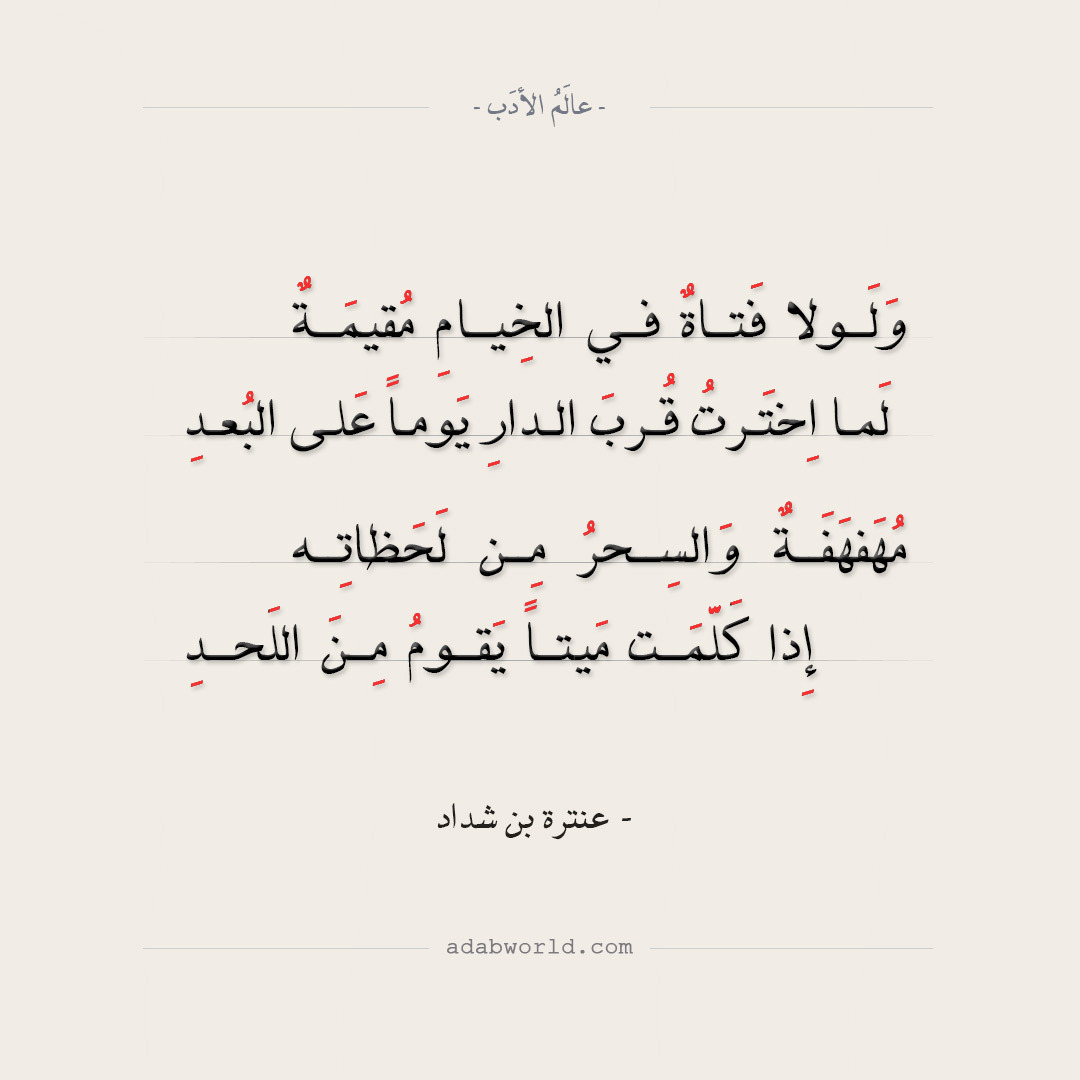 - عالَمُ الأدَب -
وَلَـولا فَتـاةٌ فـي الخِيـامِ مُقيمَـةٌ
لَمـا اِختَـرتُ قُـربَ الـدارِ يَومـاً عَلـى البُعـدِ
مُهَفهَفَـةٌ وَالسِـحرُ مِـن لَحَظاتِـه
إِذا كَلَّمَـت مَيتـاً يَقـومُ مِـنَ اللَحـدِ
- عنترة بن شداد
adabworld.com